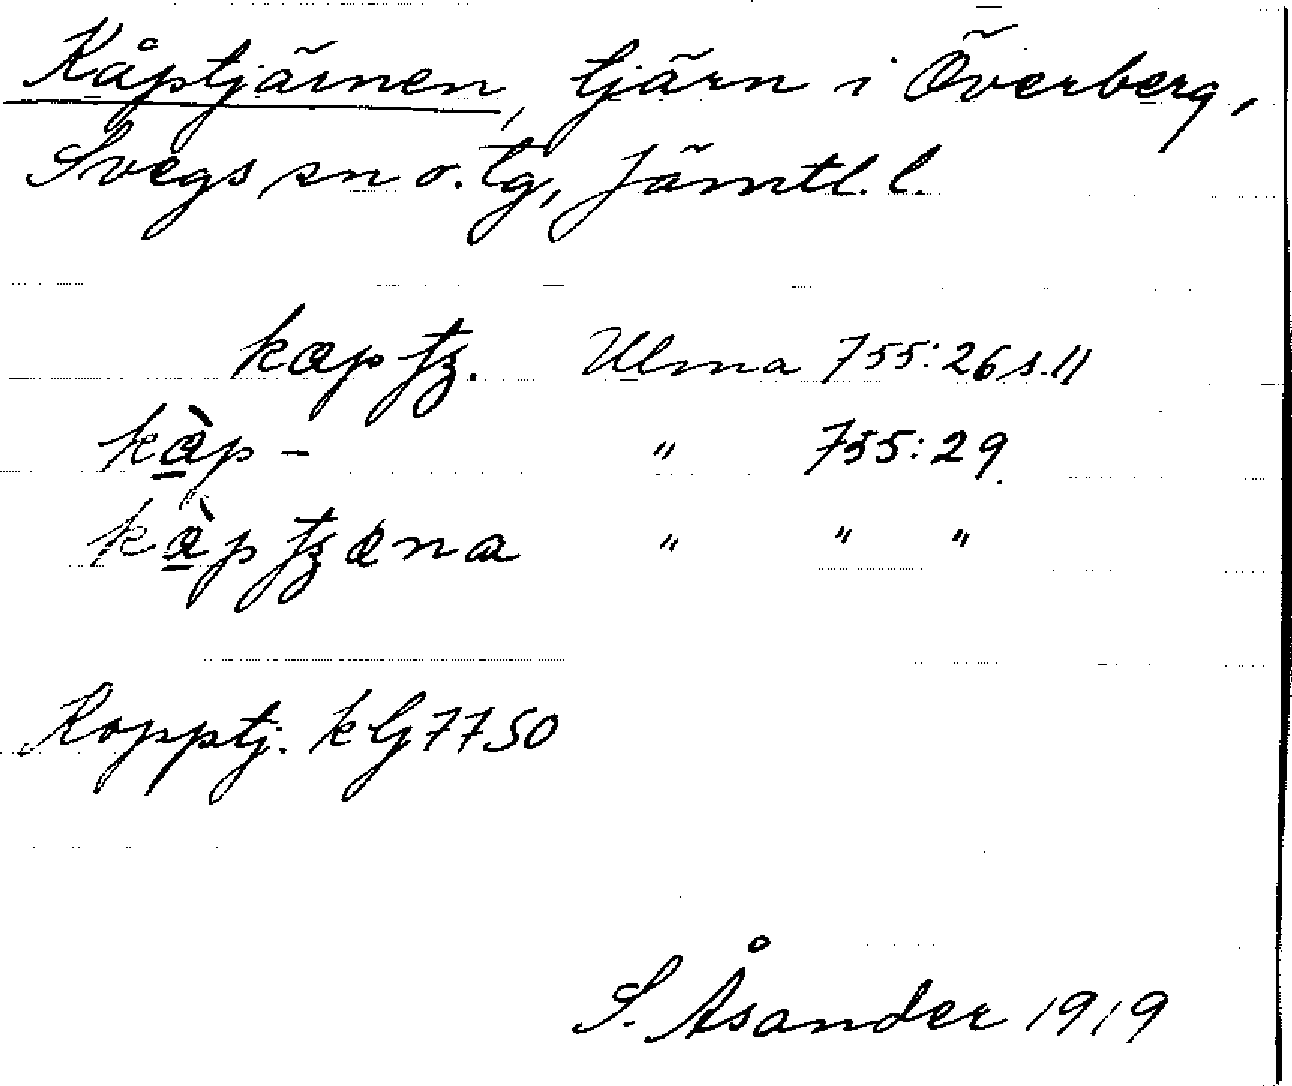 Kåptjärnen, tjärn i Överberg,
Svegs sn o. tg, Jämtl. l.
kap tz. Ulma 755:26 s. 11
kàp - " 755:29.
kàp tzæna " " "
Kopptj. k bj 7750
S. Åsander 1919